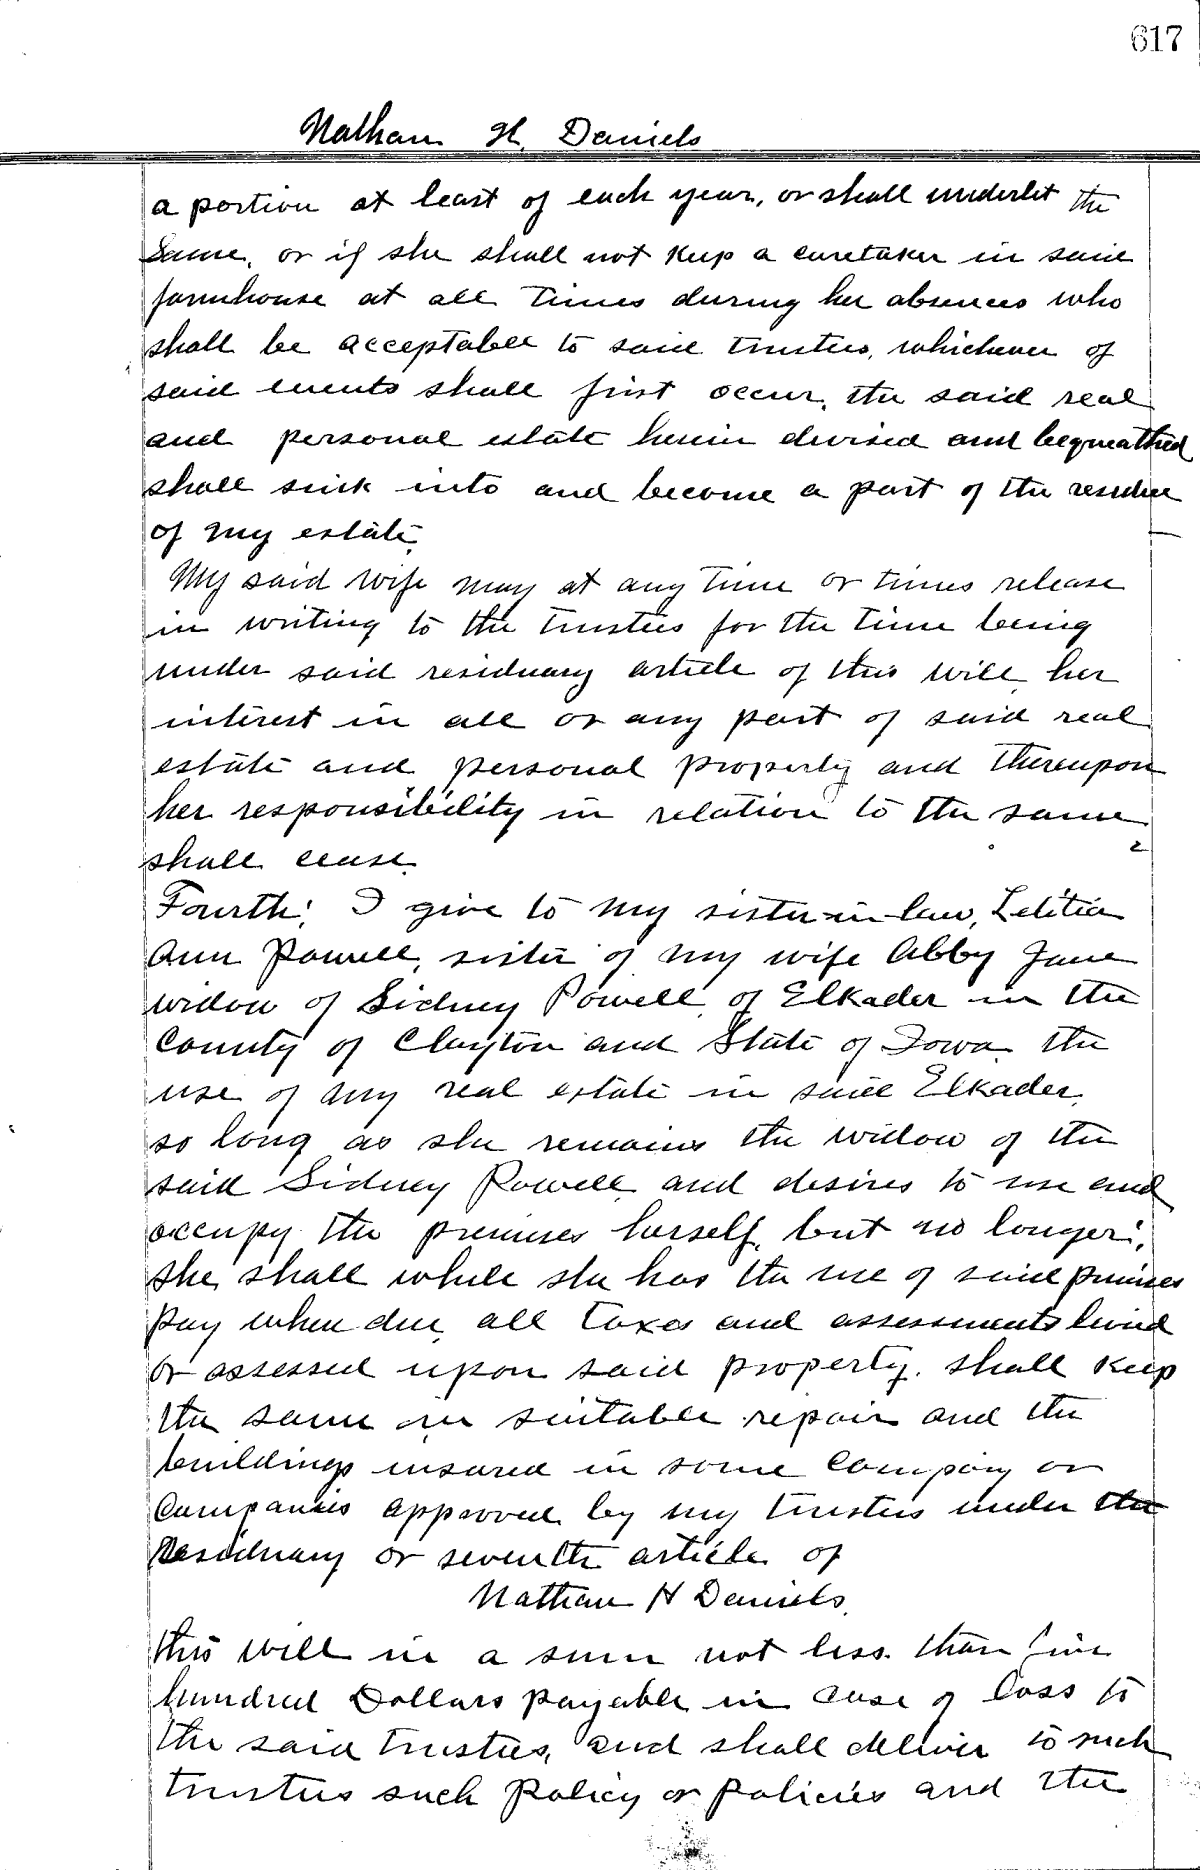 617
Nathan H. Daniels
a portion at least of each year, or shall underlet the
same, or if she shall not keep a caretaker in said
farmhouse at all times during her absences who
shall be acceptable to said trustees, whichever of
said events shall first occur, the said real
and personal estate herein devised and bequeathed
shall sink into and become a part of the residue
of my estate.
My said wife may at any time or times release
in writing to the trustees for the time being
under said residuary article of this will, her
interest in all or any part of said real
estate and personal property and thereupon
her responsibility in relation to the same
shall cease.
Fourth; I give to my sister-in-law, Letitia
Ann Powell, sister of my wife Abby Jane
widow of Sidney Powell, of Elkader in the
County of Clayton and State of Iowa the
use of my real estate in said Elkader,
so long as she remains the widow of the
said Sidney Powell and desires to use and
occupy the premises herself, but no longer;
she shall while she has the use of said premises
pay when due, all taxes and assessments levied
or assessed upon said property, shall keep
the same in suitable repair and the
buildings insured in some company or
Companies approved by my trustees under the
Residuary or seventh article of
Nathan H Daniels.
this will in a sum not less than five
hundred Dollars payable in case of loss to
the said trustees, and shall deliver to such
trustees such policy or policies and the